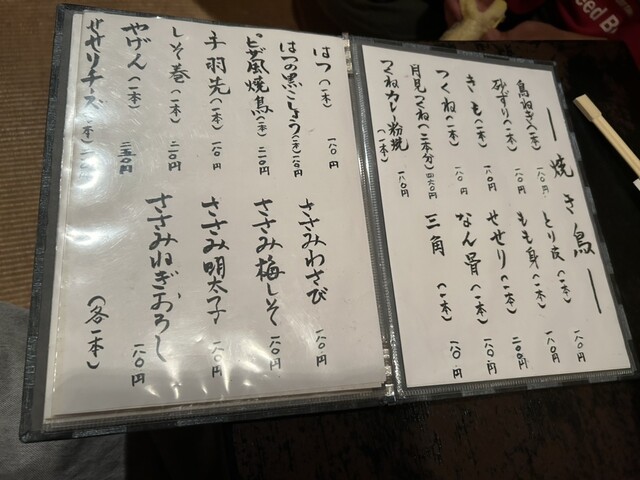 ― 焼き鳥 ―
鳥ねぎ（一本） 一八〇円
砂ずり（一本） 一八〇円
きも（一本） 一八〇円
つくね（一本） 一八〇円
月見つくね（二本分） 四六〇円
つくねカレー粉焼（一本） 一八〇円
とり皮（一本） 一八〇円
もも身（一本） 一八〇円
せせり（一本） 二〇〇円
なん骨（一本） 一八〇円
三角（一本） 一八〇円
はつ（一本） 一八〇円
はつの黒こしょう（一本）
ピザ風焼鳥（一本） 二一〇円
手羽先（一本）
しそ巻（一本） 二一〇円
やげん（一本） 二五〇円
せせりチーズ（一本）
ささみわさび 一八〇円
ささみ梅しそ 一八〇円
ささみ明太子 一八〇円
ささみねぎおろし 一八〇円
（各一本）
eed B